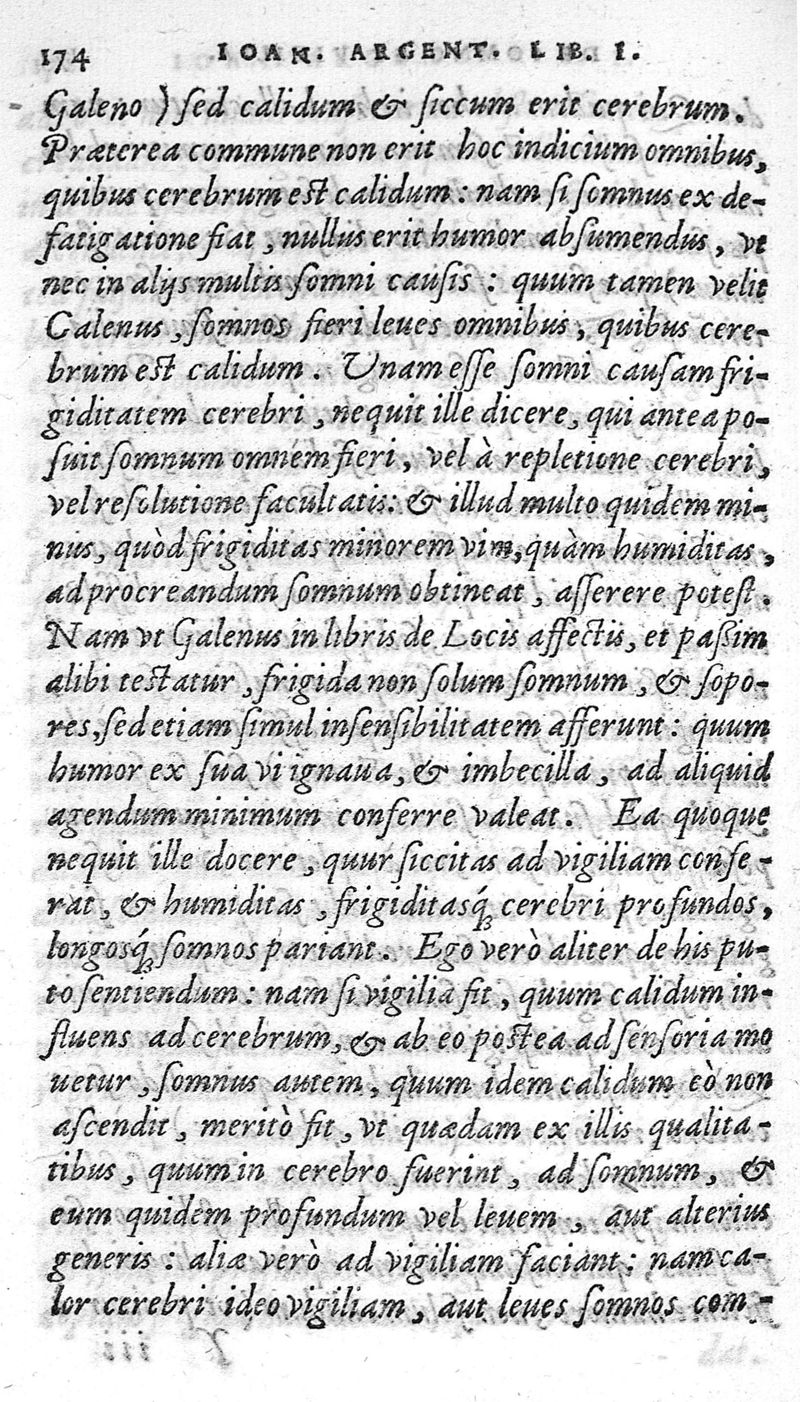 174 IOAN. ARGENT. LIB. I.
Galeno ) ſed calidum & ſiccum erit cerebrum.
Præterea commune non erit hoc indicium omnibus,
quibus cerebrum est calidum: nam ſi ſomnus ex de-
fatigatione fiat, nullus erit humor abſumendus, vt
nec in alijs multis ſomni cauſis: quum tamen velit
Galenus, ſomnos fieri leues omnibus, quibus cere-
brum est calidum. Unam eſſe ſomni cauſam fri-
giditatem cerebri, nequit ille dicere, qui antea po-
ſuit ſomnum omnem fieri, vel à repletione cerebri,
vel reſolutione facultatis: & illud multo quidem mi-
nus, quòd frigiditas minorem vim, quàm humiditas,
ad procreandum ſomnum obtineat, aſſerere poteſt.
Nam vt Galenus in libris de Locis affectis, et paßim
alibi testatur, frigida non ſolum ſomnum, & ſopo-
res, ſed etiam ſimul inſenſibilitatem afferunt: quum
humor ex ſua vi ignaua, & imbecilla, ad aliquid
agendum minimum conferre valeat. Ea quoque
nequit ille docere, quur ſiccitas ad vigiliam confe-
rat, & humiditas, frigiditasq́ꝫ cerebri profundos,
longosq́ꝫ ſomnos pariant. Ego verò aliter de his pu-
to ſentiendum: nam ſi vigilia fit, quum calidum in-
fluens ad cerebrum, & ab eo postea ad ſenſoria mo
uetur, ſomnus autem, quum idem calidum eò non
aſcendit, meritò fit, vt quædam ex illis qualita-
tibus, quum in cerebro fuerint, ad ſomnum, &
eum quidem profundum vel leuem, aut alterius
generis: aliæ verò ad vigiliam faciant: nam ca-
lor cerebri ideo vigiliam, aut leues ſomnos com-